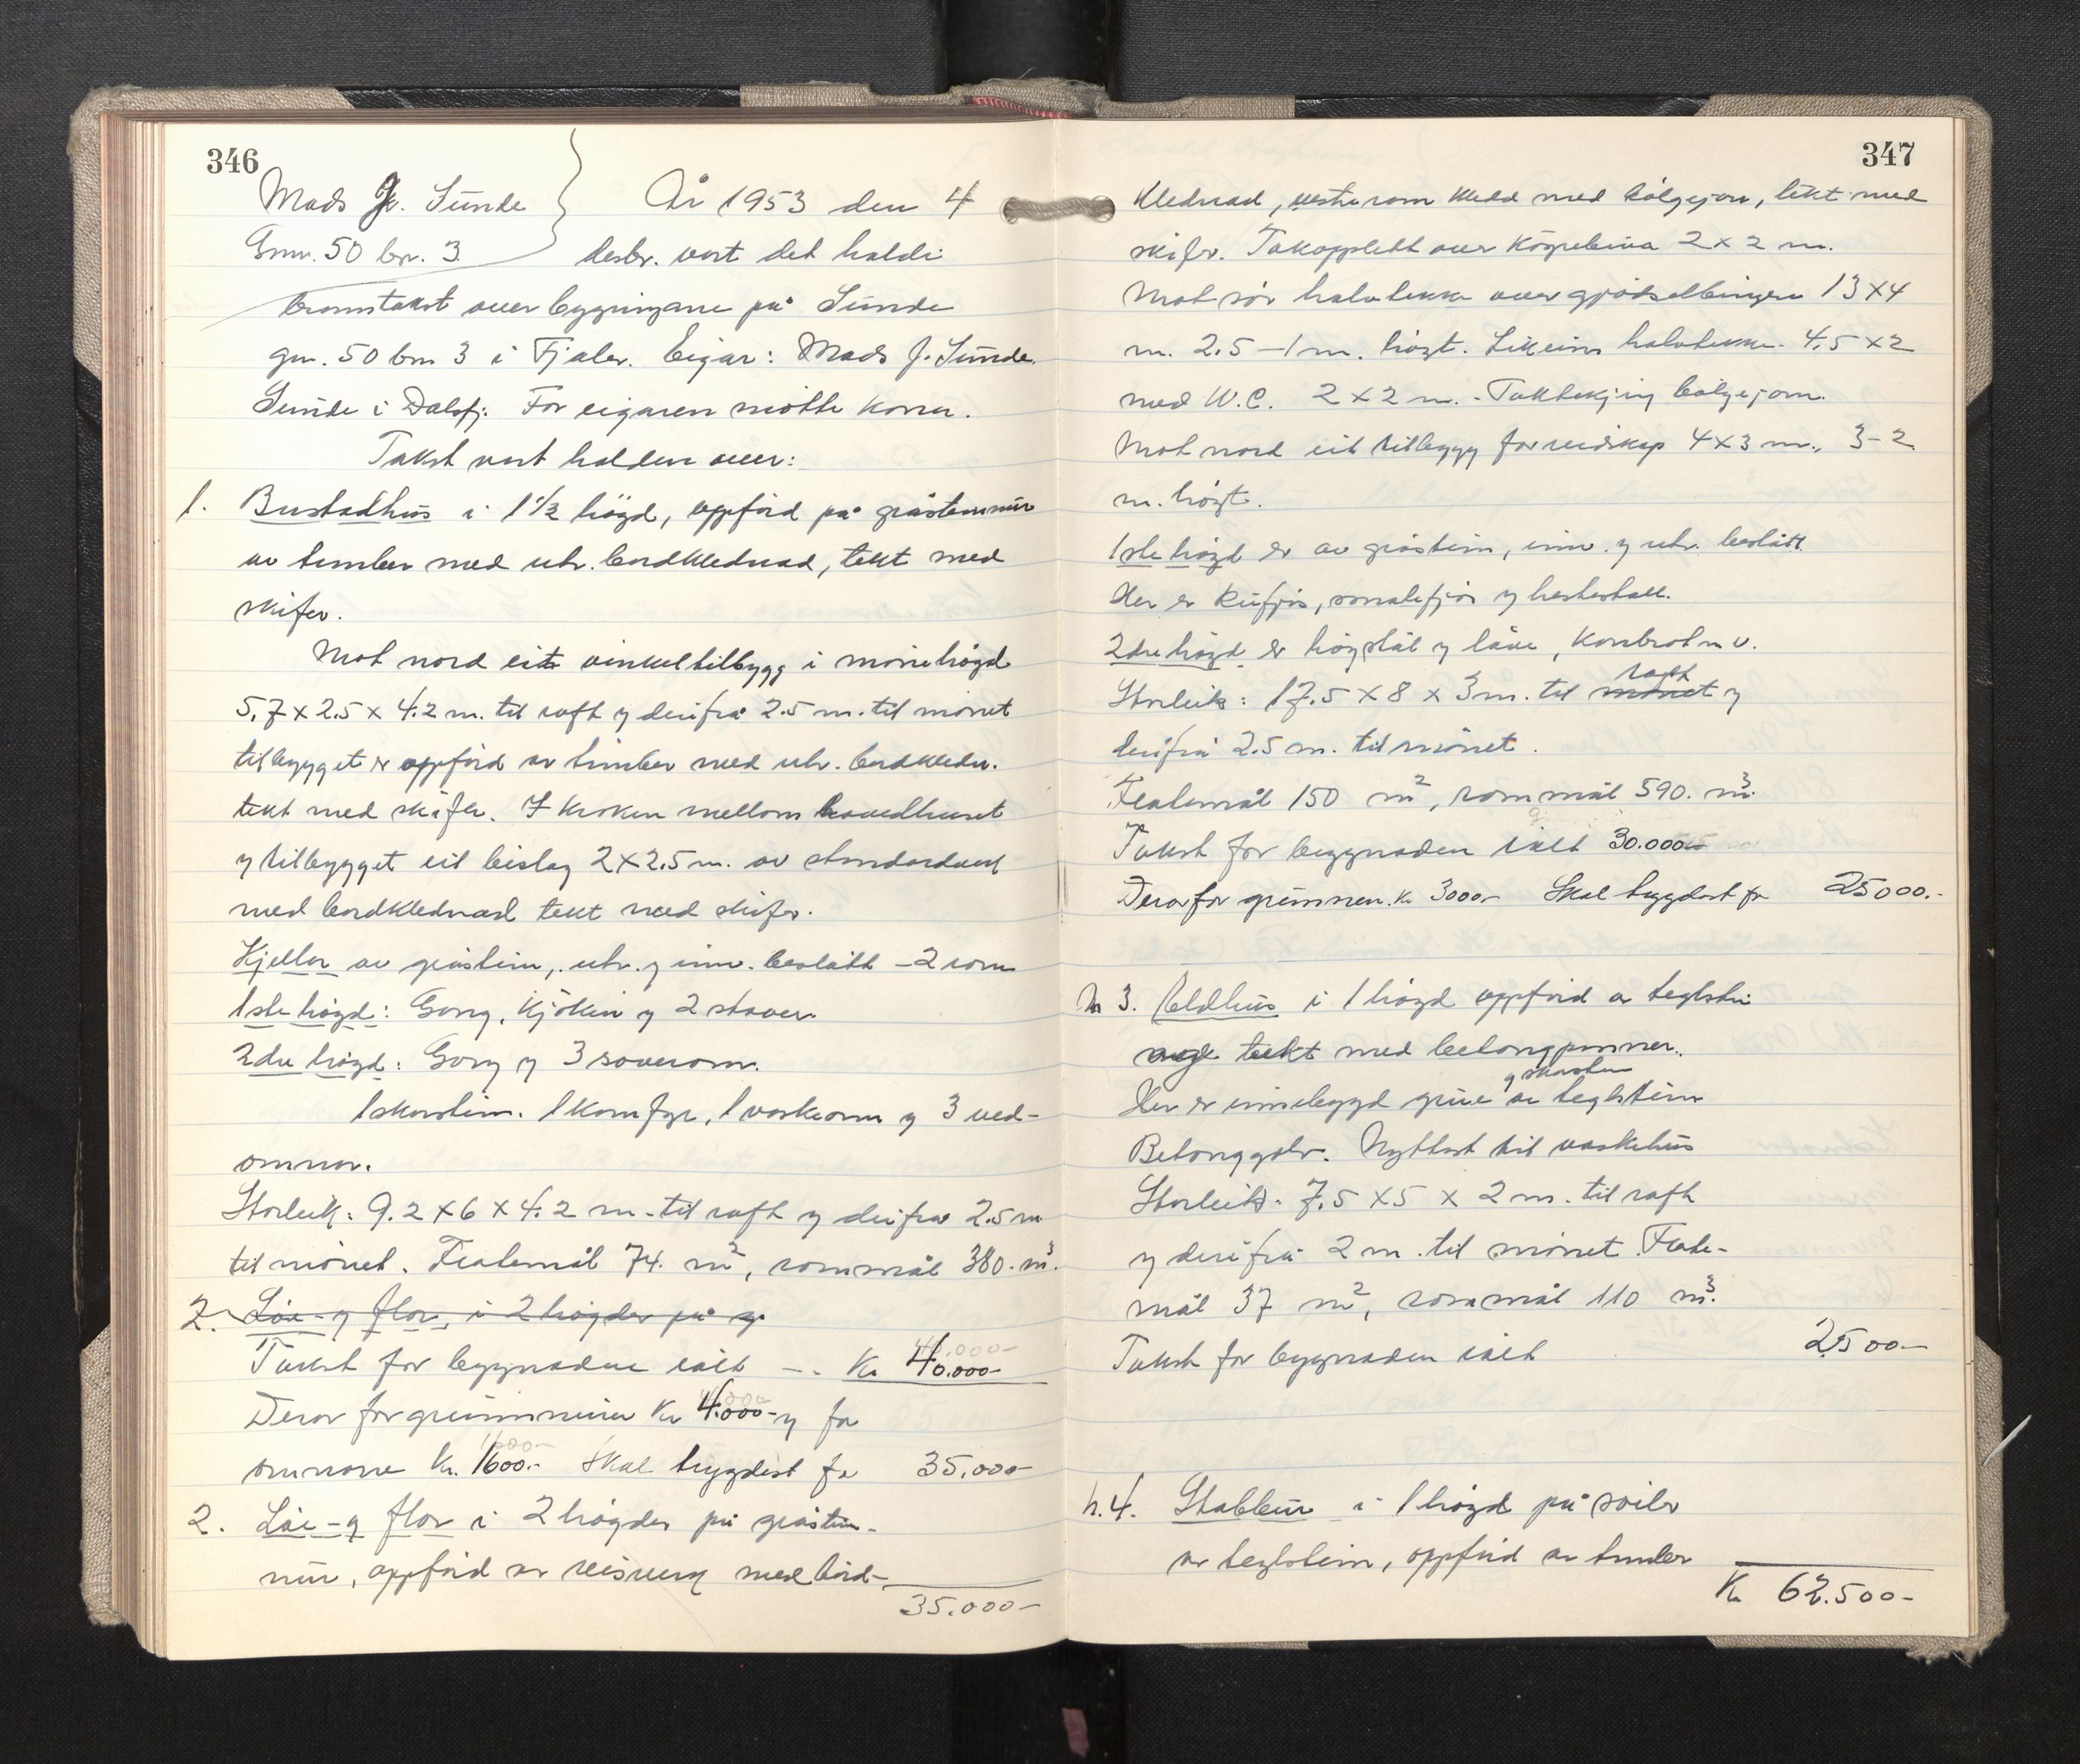 346
Mads J. Sunde
År 1953 den 4
Gnr. 50 br. 3
desbr. vart det haldi
branntakst over bygningane på Sunde
gn. 50 bn 3 i Fjaler. Eigar: Mads J. Sunde.
Sunde i Dalsfj. For eigaren møtte kona.
Takst vart halden over:
1. Bustadhus i 1 1/2 högd, oppförd på gråstenmur
av tømber med utv. bordklednad, tekt med
skifer.
Mot nord eit vinkeltilbygg i mönehögd
5,7 x 2.5 x 4.2 m. til raft og derifrå 2.5 m. til mönet
tilbygget er oppförd av timber med utv. bordkledn.
tekt med skifer. I kroken mellom hovedhuset
og tilbygget eit bislag 2 x 2.5 m. av standardverk
med bordklednad tekt med skifer.
Kjellar av gråstein, utv. og innv. beslått - 2 rom
1ste högd: Gang, kjöken og 2 stover
2dre högd: Gang og 3 soverom.
1 skorstein. 1 komfyr, 1 vaskeomn og 3 ved-
omnar.
Storleik: 9.2 x 6 x 4.2 m. til raft og derifrå 2.5 m
til mönet. Flatemål 74. m², rommål 380. m³.
2. Löe- og flor, i 2 högder på g
Takst for bygnaden ialt -. Kr 40.000-
Derav for grunnmuren Kr 4.000- og for
omnane kr. 1600.- Skal trygdast for 35.000-
2. Löe- og flor i 2 högder på gråstein-
mur, oppförd av reisverk med bord-
35.000-
347
klednad, vestre rom kledd med bölgejarn, tekt med
skifer. Takopplett over Köyrebrua 2 x 2 m.
Mot sör halvtekke over gjödselbingen 13 x 4
m. 2.5 - 1 m. högt. Likeins halvtekke 4.5 x 2
med W.C. 2 x 2 m. - Taktekjing bölgejarn.
Mot nord eit tilbygg for reidskap 4 x 3 m., 3 - 2
m. högt.
1ste högd er av gråstein, innv. og utv. beslått.
Her er kufjös, smalefjös og hestestall.
2dre högd er höystål og låve, kornbrot m v.
raft
Storleik: 17.5 x 8 x 3 m. til mönet og
derifrå 2.5 m. til mönet.
Flatemål 150 m², rommål 590. m³.
Takst for bygnaden ialt 30.000
Derav for grunnen. kr 3000- Skal trygdast for 25000.-
N 3. Eldhus i 1 högd oppförd av teglstein
og tekt med betongpanner.
og skorstein
Her er innebygd grue av teglstein
Betonggolv. Nyttast til vaskehus
Storleik: 7.5 x 5 x 2 m. til raft
og derifrå 2 m. til mönet. Flate-
mål 37 m², rommål 110 m³.
Takst for bygnaden ialt 2500-
n. 4. Stabbur i 1 högd på söiler
av teglstein, oppförd av tømber
Kr 62.500-